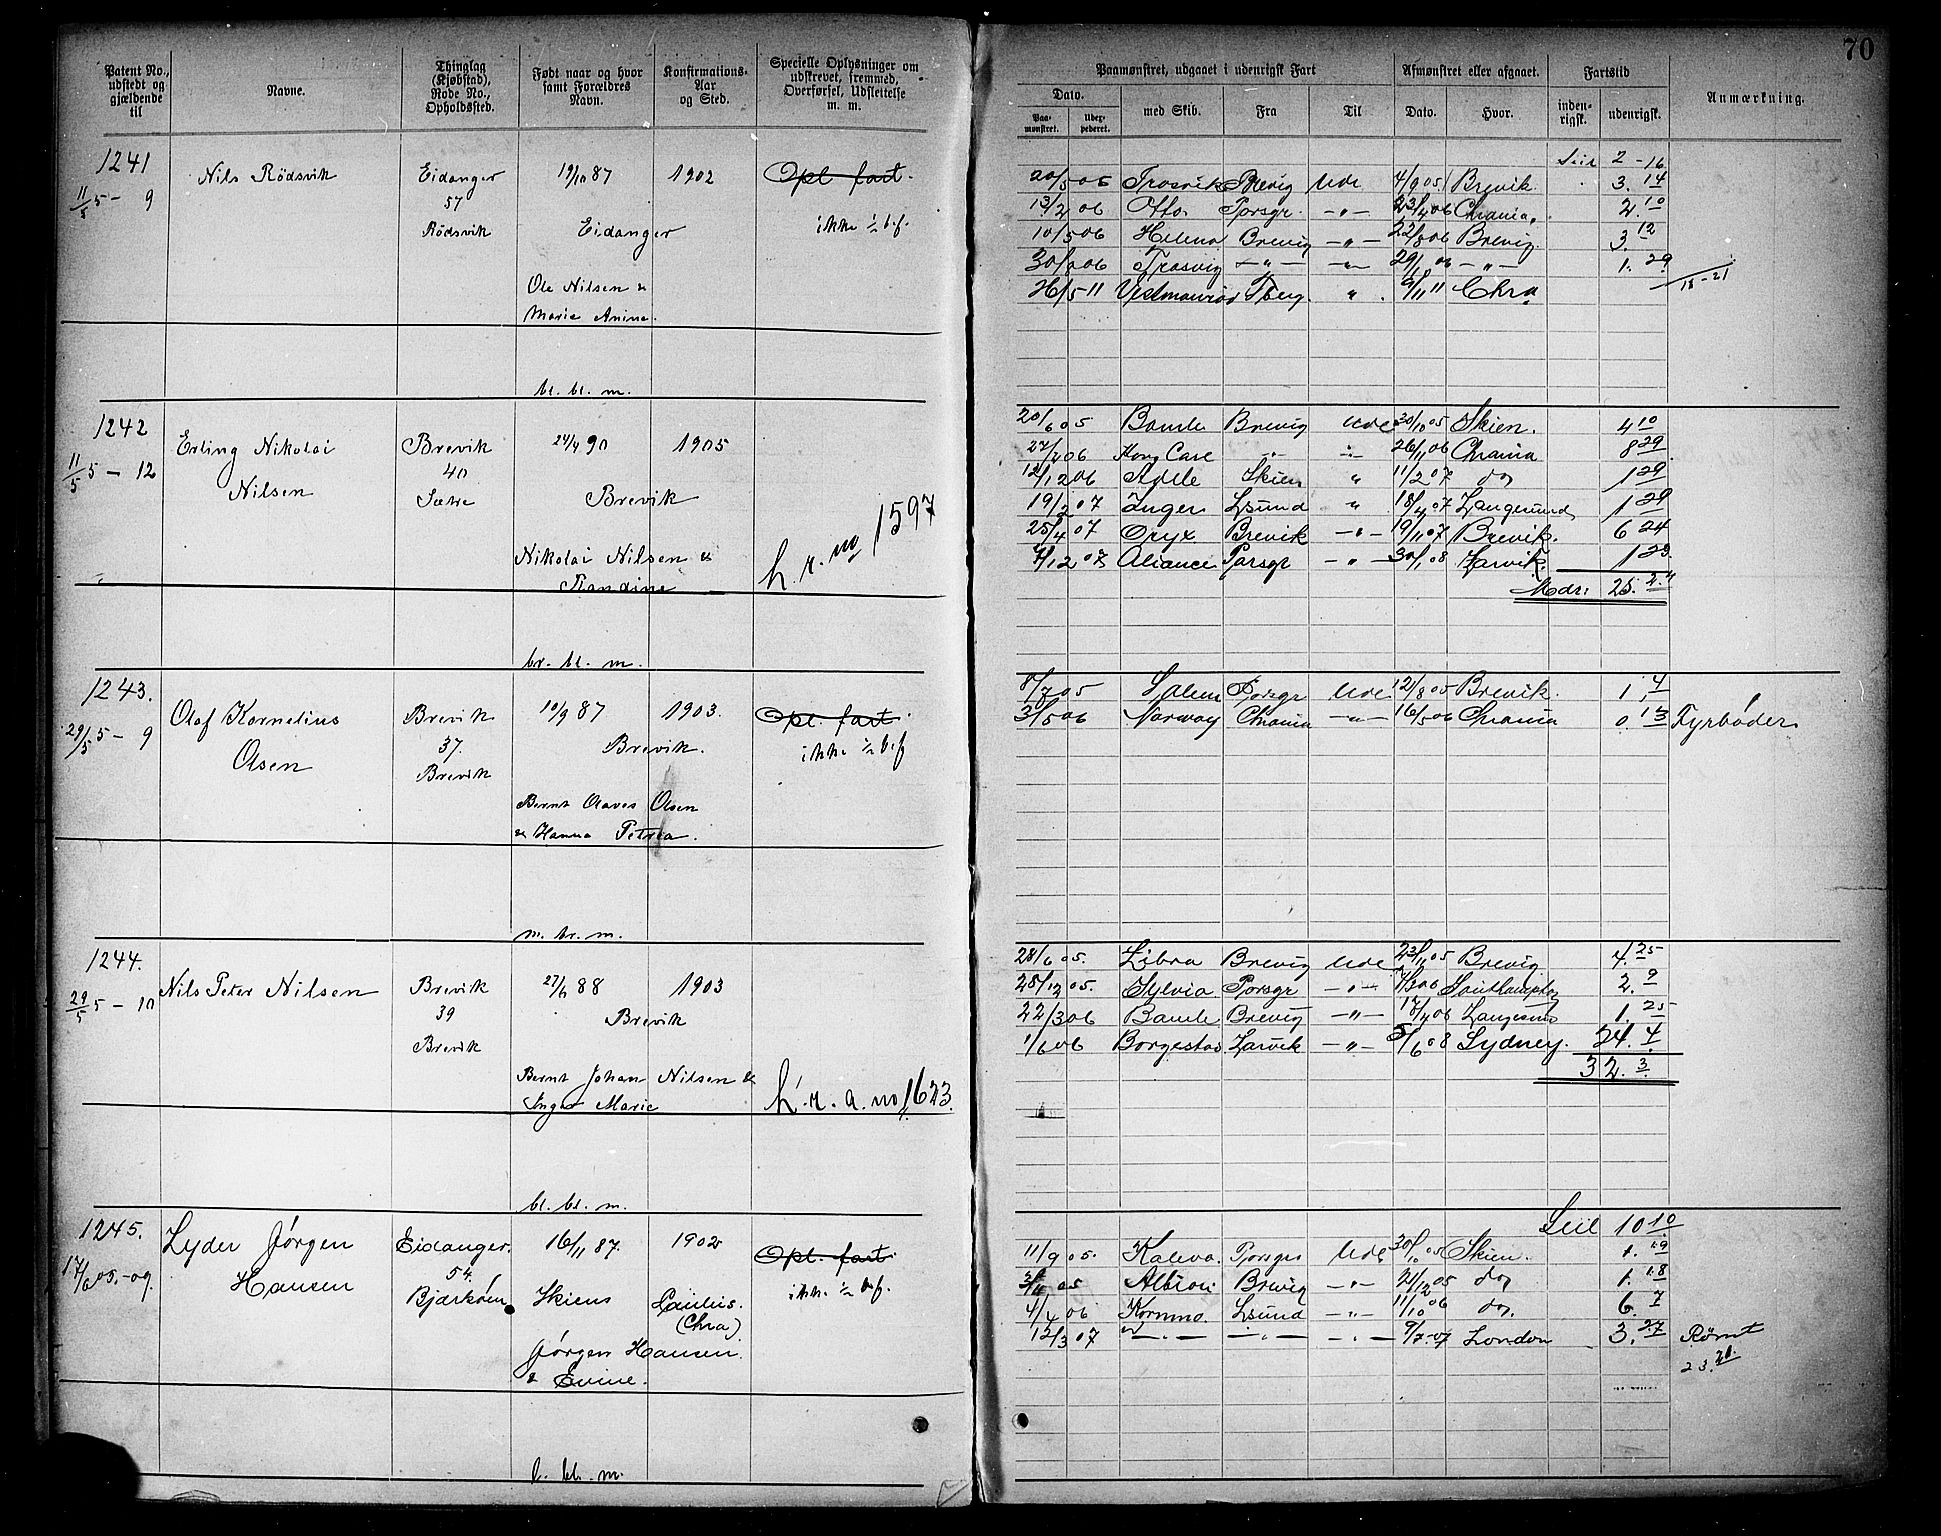 70
Patent No., udstedt og gjældende til
Navne.
Thinglag (Kjøbstad), Rode No., Opholdssted.
Født naar og hvor samt Forældres Navn.
Konfirmations-Aar og Sted.
Specielle Oplysninger om udskrevet, fremmed, Overførsel, Udslettelse m. m.
Paamønstret, udgaaet i udenrigsk Fart
Afmønstret eller afgaaet.
Fartstid
Anmærkning.
Dato.
med Skib.
Fra
Til
Dato.
Hvor.
inden-rigsk.
udenrigsk.
Paa-mønstret.
1241
11/5 5 - 9
Nils Rödsvik
Eidanger
57
Rödsvik
19/10 87
1902
Eidanger
Ole Nilsen &
Marie Anine.
Opl. fart.
ikke 1/2 bef.
bl. bl. m.
Seil 2 - 16
20/5 05 Trosvik Brevig Ude 4/9 05 Brevik. 3. 14
13/2 06 Otto Porsgr. -"- 23/4 06 Chrania. 2. 10
10/5 06 Helena Brevig -"- 22/8 06 Brevig. 3. 12
Trosvig -"- -"- -"- 1. 29
15-21
26/5 11 Tberg. " 9/11 11 Chra
1242
11/5 5 - 12
Erling Nikolai
Nilsen
Brevik
40
Sætre
24/4 90
1905
Brevik
Nikolai Nilsen &
Randine
h. r. no 1597
br. bl. m.
20/6 05 Bamle Brevig Ude 30/10 05 Skien. 4 10
27/2 06 Kong Care -"- -"- 26/11 06 Chrania 8 29
12/12 06 Adele Skien " 11/2 07 do 1 29
19/2 07 Inger Lsund " 18/4 07 Langesund 1 29
25/4 07 Oryx Brevik -"- 19/11 07 Brevik. 6 24
7/12 07 Aliance Porsgr -"- 30/1 08 Larvik. 1 23
Mdr: 25. 24
1243.
29/5 5 - 9
Olaf Kornelius
Olsen
Brevik
37.
Brevik
10/9 87
1903.
Brevik.
Bernt Olaves Olsen
& Hanna Petrea.
Opl. fart.
ikke 1/2 bef
m. br. m.
8/7 05 Salem Porsgr Ude 12/8 05 Brevik. 1. 4
3/5 06 Norway Chrania -"- 16/5 06 Chrania 0. 13 Fyrbøder
1244.
29/5 5 - 10
Nils Peter Nilsen
Brevik
39
Brevik
88
1903
Brevik
Bernt Johan Nilsen &
Inger Marie
h. r. a. no 1623.
bl. bl. m.
28/6 05. Libra Brevig Ude 23/11 05 Brevig 4. 25
28/12 05. Sylvia Porsgr -"- Southampton 2. 9
22/3 06 Bamle Brevig -"- 17/4 06 Langesund 1. 25
1/6 06 Borgestad Larvik -"- 5/6 08 Sydney. 24. 4
32. 3
1245.
17/6 05.-09.
Lyder Jörgen
Hansen
Eidanger.
54.
Bjørkøen
16/11 87.
1902
Skiens
Paulus.
(Chra)
Jørgen Hansen
& Evine.
Opl. fart.
ikke 1/2 bef.
bl. m.
Seil 10 10
11/9 05. Kaleva. Porsgr Ude 30/10 05 Skien. 1. 19
Albion Brevig -"- 21/12 05 do 1. 18
4/4 06 Kornmo. Lsund -"- 11/10 06 do. 6. 7
12/3 07 -"- -"- -"- 9/7 07 London 3. 27 Rømt
23. 21.